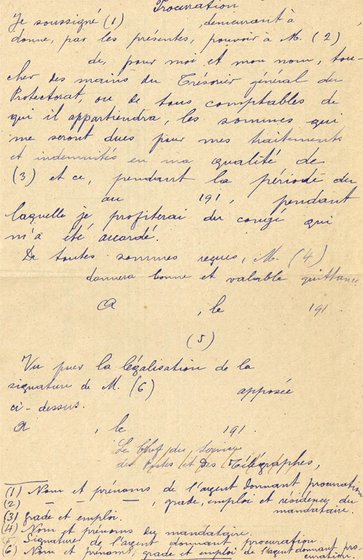 Procuration
Je soussigné (1) demeurant à
donne, par les présentes, pouvoir à M. (2)
de, pour moi et mon nom, tou-
cher des mains du Trésorier général du
Protectorat, ou de tous comptables de
qui il appartiendra, les sommes qui
me seront dues pour mes traitements
et indemnités en ma qualité de
(3) et ce, pendant la période du
au 191 , pendant
laquelle je profiterai du congé qui
m'a été accordé.
De toutes sommes reçues, M. (4)
donnera bonne et valable quittance
A , le 191 .
(5)
Vu pour la légalisation de la
signature de M. (6) apposée
ci-dessus.
A , le 191 .
Le Chef du
des Postes et des Télégraphes,
(1) Nom et prénoms de l'agent donnant procuration
(2) — — , grade, emploi et résidence du
mandataire.
(3) grade et emploi.
(4) Nom et prénoms du mandataire.
(5) Signature de l'agent donnant procuration.
(6) Nom et prénoms, grade et emploi de l'agent donnant pro-
curation.